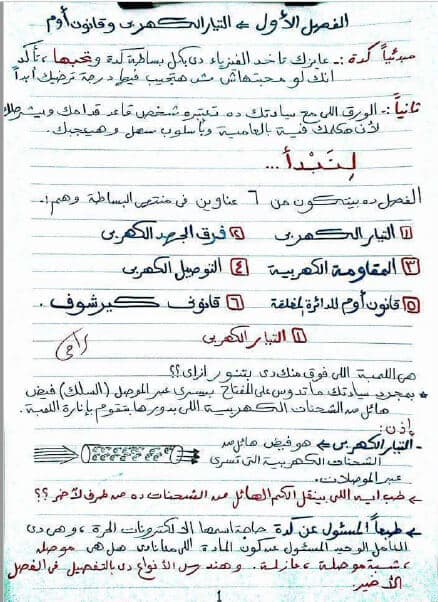 الفصل الأول ← التيار الكهربى وقانون أوم
مبدئياً كدة :- عايزك تاخد الفيزياء دى بكل بساطة كدة وتحبها، تأكد
انك لو محبتهاش مش هتجيب فيها درجة ترضيك أبداً
ثانياً :- الورق اللى مع سيادتك ده تعتبره شخص قاعد قدامك وبيشرحلك
لأن هكلمك فيه بالعامية وبأسلوب سهل وهيعجبك.
لنبدأ ...
الفصل ده بيتكون من ٦ عناوين فى منتهى البساطة وهم:-
١ التيار الكهربى ٢ فرق الجهد الكهربى
٣ المقاومة الكهربية ٤ التوصيل الكهربى
٥ قانون أوم للدائرة المغلقة ٦ قانون كيرشوف.
١ التيار الكهربى
هى اللمبة اللى فوق منك دى بتنور ازاى؟؟
* بمجرد سيادتك ما تدوس على المفتاح بيسرى عبر الموصل (السلك) فيض
هائل من الشحنات الكهربية اللى بدورها بتقوم بإنارة اللمبة.
إذن:
- التيار الكهربى ← هو فيض هائل من
الشحنات الكهربية التى تسرى
عبر الموصلات.
- طب ايه اللى بينقل الكم الهائل من الشحنات ده من طرف لآخر؟؟
- طبعاً المسئول عن كدة حاجة اسمها الالكترونات الحرة، وهى دى
العامل الوحيد المسئول عن كون المادة اللى معاياى هل هى موصلة
، شبة موصلة، عازلة. وهندرس الأنواع دى بالتفصيل فى الفصل
الأخير.
1